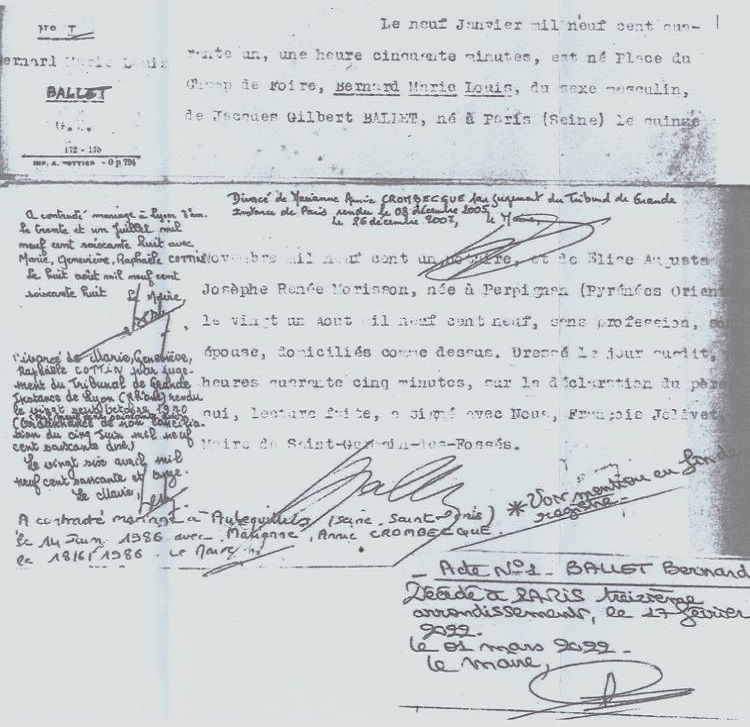 No I
Bernard Marie Louis
BALLET
172 - 175
IMP. A. POTTIER - 0 p 794
Le neuf Janvier mil neuf cent qua-
rante un, une heure cinquante minutes, est né Place du
Champ de Foire, Bernard Marie Louis, du sexe masculin,
de Jacques Gilbert BALLET, né à Paris (Seine) le quinze
Divorcé de Marianne Annie CROMBECQUE par jugement du Tribunal de Grande
Instance de Paris rendu le 08 décembre 2005,
le 26 décembre 2007, le Maire,
A contracté mariage à Lyon
le trente et un juillet mil
neuf cent soixante huit avec
Marie, Geneviève, Raphaële COTTIN
le huit août mil neuf cent
soixante huit Le Maire
Novembre mil neuf cent un notaire, et de Elise Augusta
Josèphe Renée Morisson, née à Perpignan (Pyrénées Orient
le vingt un Aout mil neuf cent neuf, sans profession, son
épouse, domiciliés comme dessus. Dressé le jour susdit,
heures quarante cinq minutes, sur la déclaration du père
qui, lecture faite, a signé avec Nous, François Jolivet
Maire de Saint-Germain-des-Fossés.
Divorcé de Marie, Geneviève,
Raphaële COTTIN par juge-
ment du Tribunal de Grande
Instance de Lyon (Rhône) rendu
le vingt neuf Octobre 1970
(Ordonnance de non concilia-
tion du cinq Juin mil neuf
cent soixante dix)
Le vingt six avril mil
neuf cent soixante et onze
Le Maire,
Ballet
* Voir mention en fin de
registre.
A contracté mariage à Aubervilliers (Seine Saint-Denis)
le 14 Juin 1986 avec Marianne, Annie CROMBECQUE.
le 18/6/1986 Le Maire
- Acte No 1 - BALLET Bernard
Décédé à PARIS treizième
arrondissement, le 17 février
2022.
le 01 mars 2022.
le Maire,